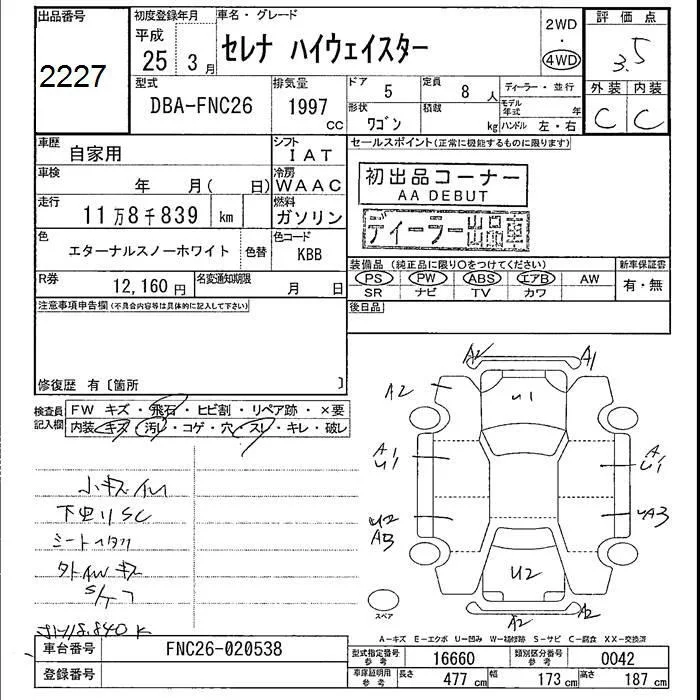 出品番号 初度登録年月 車名・グレード 2WD 評価点
2227 平成 25 3月 セレナ ハイウェイスター ・ 4WD 3.5
型式 排気量 ドア 5 定員 8人 ディーラー・並行 外装 内装
DBA-FNC26 1997 CC 形状 ワゴン 積載 kg モデル年式 年 C C
ハンドル 左・右
車歴 自家用 シフト IAT セールスポイント(正常に機能するものに限ります)
車検 年 月( 日) 冷房 WAAC 初出品コーナー
AA DEBUT
走行 11万8千839 km 燃料 ガソリン ディーラー出品車
色 エターナルスノーホワイト 色替 色コード KBB
装備品(純正品に限り○をつけてください) 新車保証書
PS PW ABS エアB AW 有・無
SR ナビ TV カワ
R券 12,160円 名変通知期限 月 日
注意事項申告欄(不具合内容等は具体的に記入して下さい) 後日品
修復歴 有〔箇所 〕
検査員記入欄 FW キズ・飛石・ヒビ割・リペア跡・×要
内装 キズ・汚レ・コゲ・穴・スレ・キレ・破レ
A2 A1
A2 U1
A1 U1
A U1
U2 A3
UA3
U2
A2 A2
小キズ
下 SC
シート
AW キズ
スペア
A-キズ E-エクボ U-凹み W-補修跡 S-サビ C-腐食 XX-交換済
車台番号 FNC26-020538
登録番号
型式指定番号 参考 16660 類別区分番号 参考 0042
車庫証明用 参考 長さ 477cm 幅 173cm 高さ 187cm